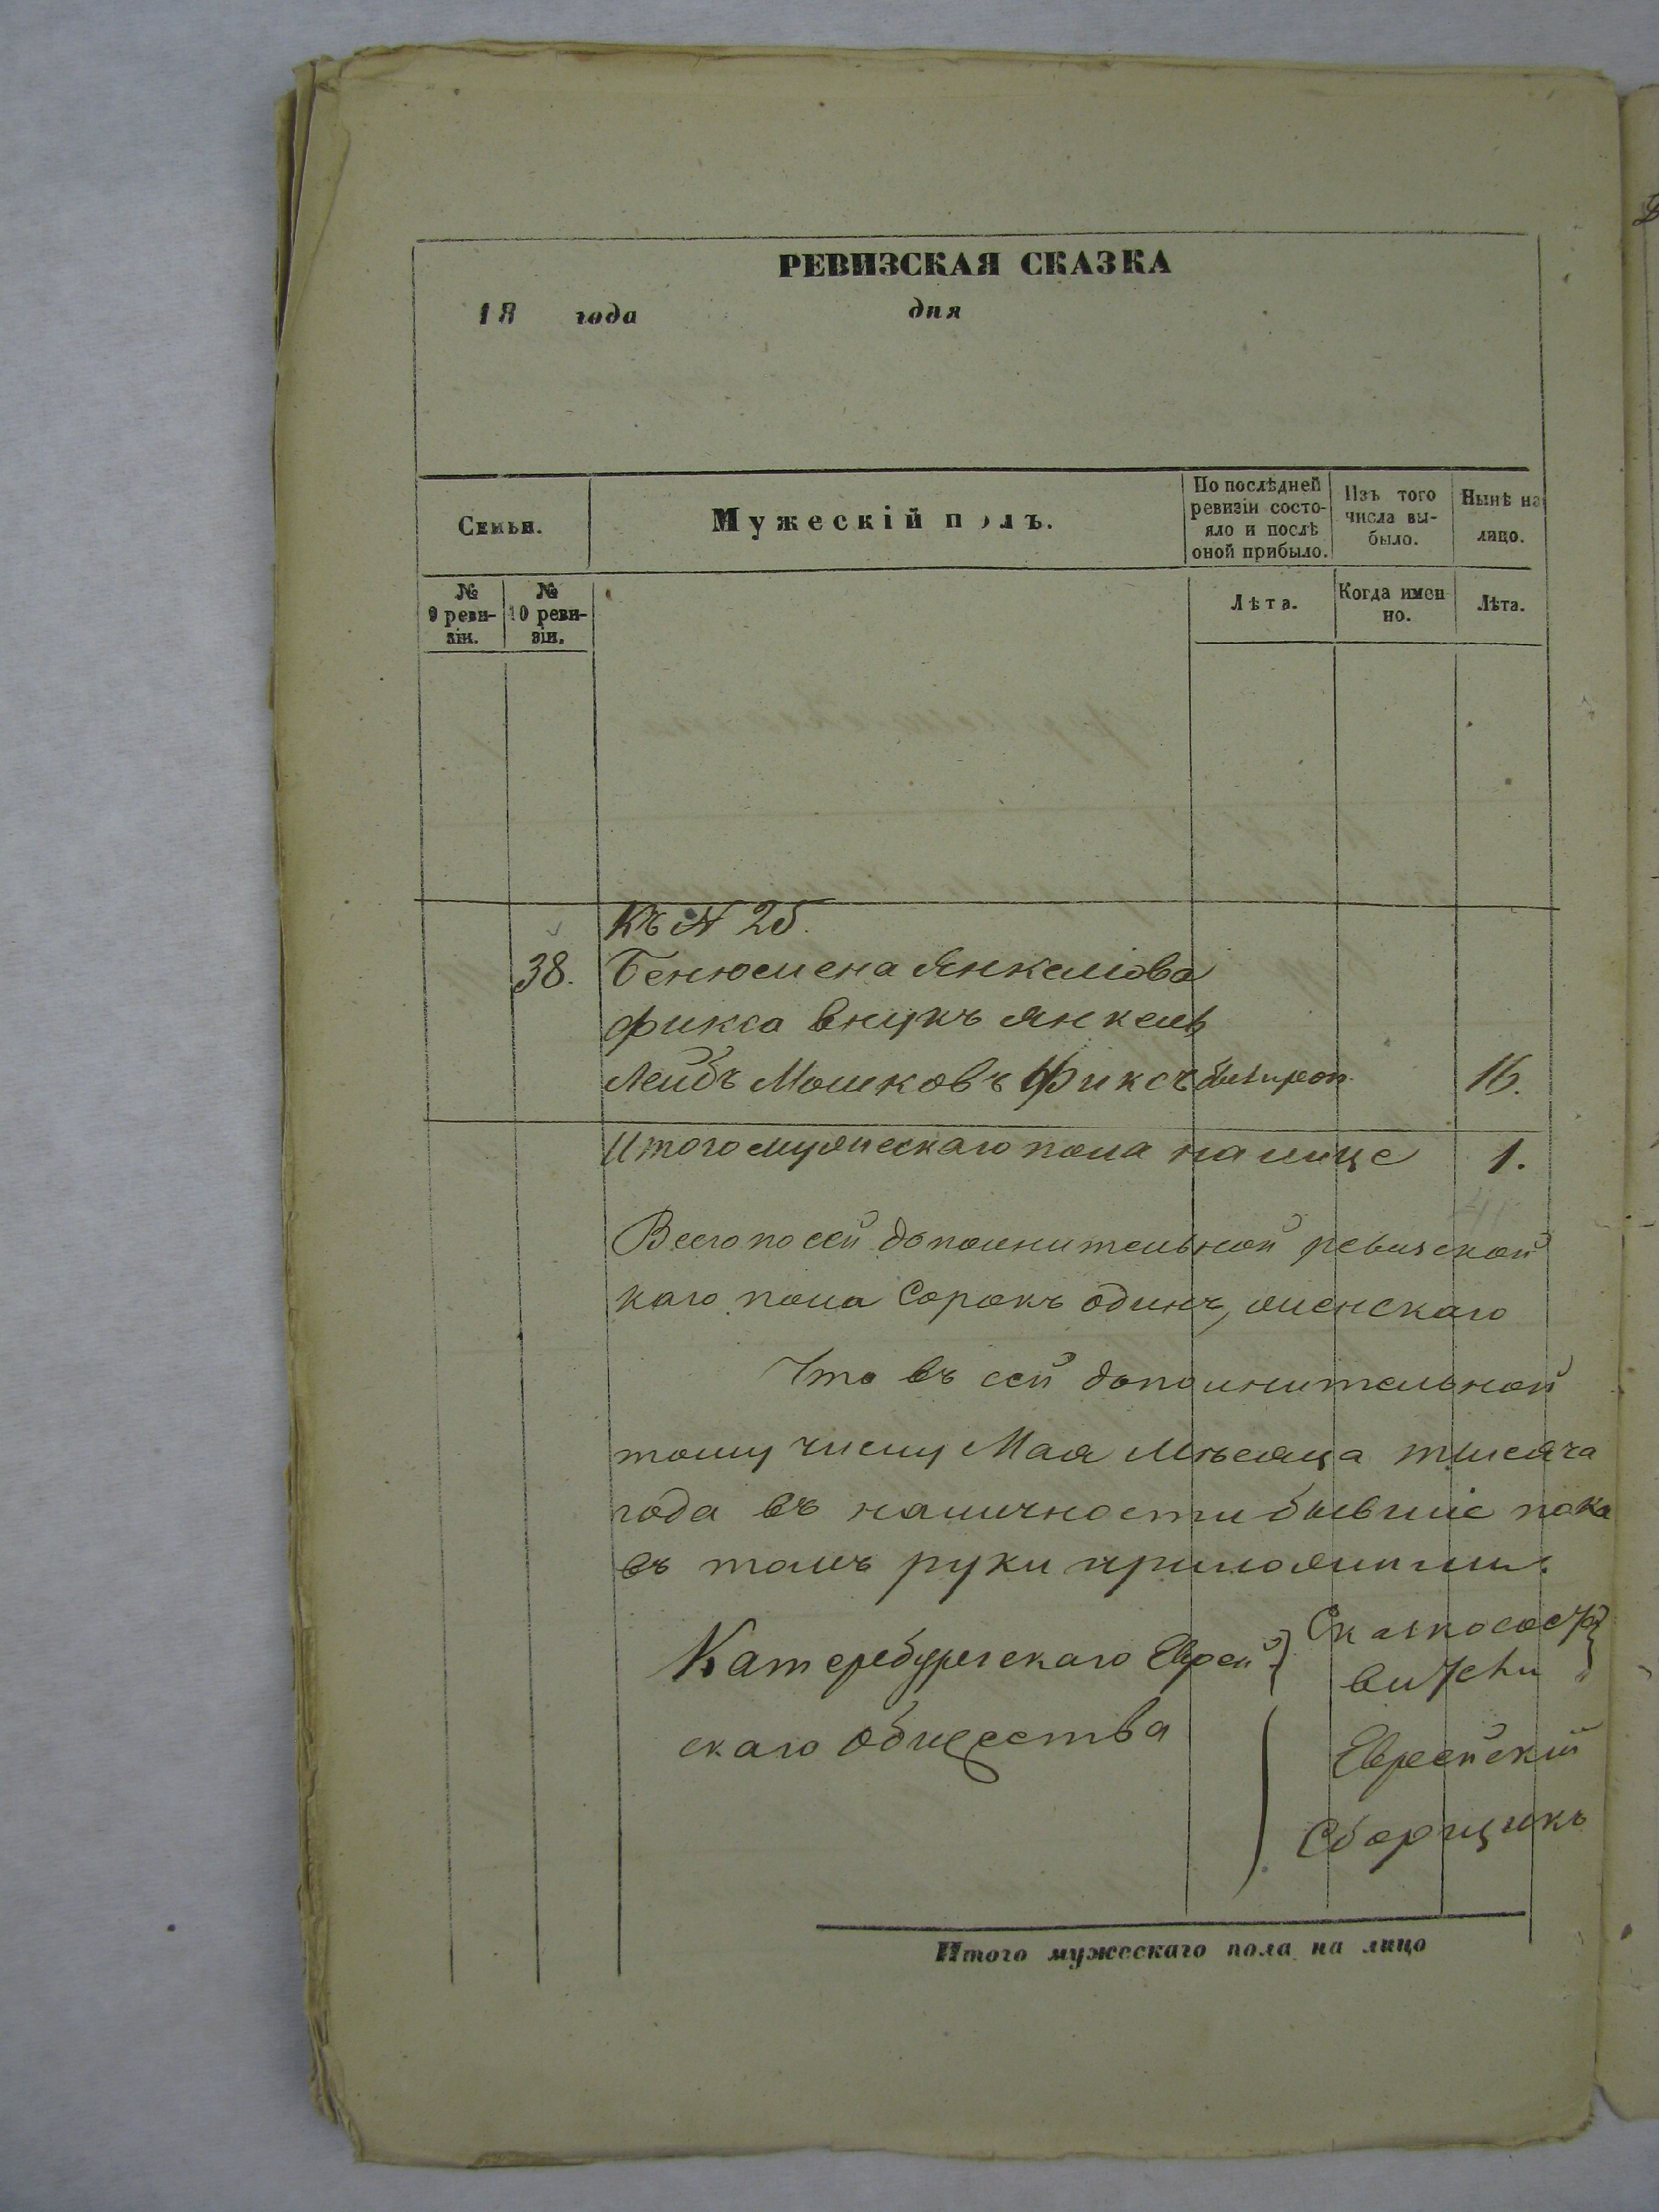 РЕВИЗСКАЯ СКАЗКА
18 года дня
Семьи.
Мужескій полъ.
По послѣдней ревизіи состо-
яло и послѣ оной прибыло.
Изъ того числа вы-
было.
Нынѣ на лицо.
№ 9 реви-
зіи.
№ 10 реви-
зіи.
Лѣта.
Когда имен
но.
Лѣта.
Къ N 25.
38. Бенюмена Янкелiова
Фикса внукъ Янкель
Лейбъ Мошковъ Фиксъ 16.
Итого мужескаго пола на лице 1.
41
Всего по сей дополнительной ревизской
каго пола сорокъ одинъ, женскаго
Что въ сей дополнительной
тому числу Мая Мѣсяца тысяча
года въ наличности бывшіе пока
въ томъ руки приложили.
Катербургскаго Еврей
скаго общества
Еврейскій
Сборщикъ
Итого мужескаго пола на лицо